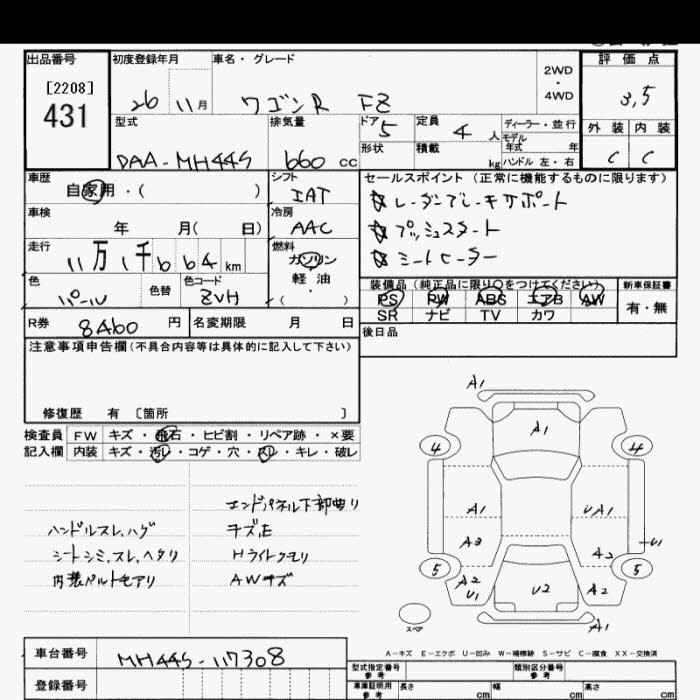 出品番号 初度登録年月 車名・グレード 評価点
[2208]
431
26 11月 ワゴンR FZ
2WD
・
4WD
3.5
型式 排気量 ドア 定員 ディーラー・並行
モデル年式 年
外装 内装
DAA-MH44S 660 cc 5 4人
形状 積載 kg ハンドル 左・右
C C
車歴 シフト セールスポイント(正常に機能するものに限ります)
自家用・( ) IAT
レーダーブレーキサポート
車検 冷房
年 月( 日) AAC
プッシュスタート
走行 燃料
11万1千664km ガソリン
シートヒーター
軽油
・
( )
色 色替 色コード
パール ZVH
装備品(純正品に限り○をつけてください) 新車保証書
PS PW ABS エアB AW
SR ナビ TV カワ
有・無
R券 8460円 名変期限 月 日
後日品
注意事項申告欄(不具合内容等は具体的に記入して下さい)
修復歴 有 〔箇所 〕
検査員 FW キズ・飛石・ヒビ割・リペア跡・×要
記入欄 内装 キズ・汚レ・コゲ・穴・スレ・キレ・破レ
エンドパネル下部曲り
ハンドルスレ,ハゲ キズ,E
シートシミ,スレ,ヘタリ Hライトクモリ
内装ベルトモアリ AWキズ
A1
A1
4 4
A1 UA1
A3 A2 U1
5 5
A2 U1 U2 A2
スペア A1
A-キズ E-エクボ U-凹み W-補修跡 S-サビ C-腐食 XX-交換済
車台番号 MH44S-117308
型式指定番号 参考 類別区分番号 参考
登録番号
車庫証明用 参考 長さ cm 幅 cm 高さ cm